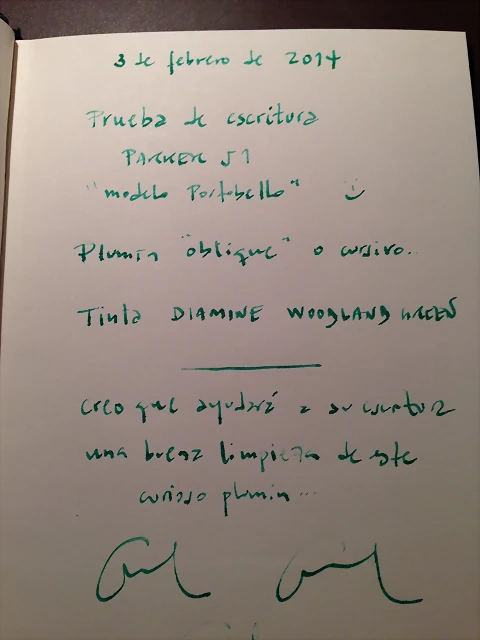 3 de febrero de 2014
Prueba de escritura
PARKER 51
"modelo Portobello" :)
Plumín "oblique" o cursivo..
Tinta DIAMINE WOODLAND GREEN
creo que ayudará a su escritura
una buena limpieza de este
curioso plumín...